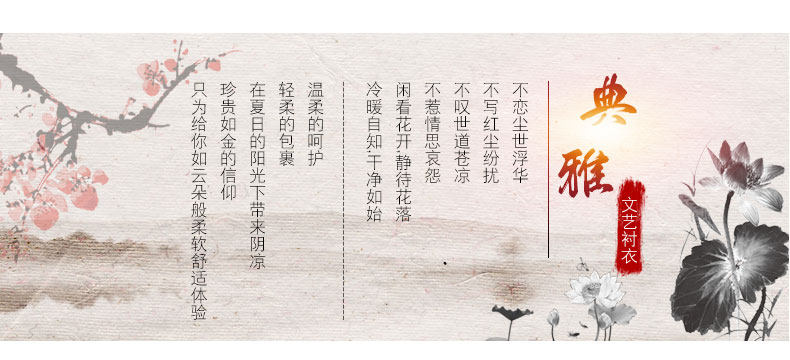 典雅
文艺衬衣
不恋尘世浮华
不写红尘纷扰
不叹世道苍凉
不惹情思哀怨
闲看花开,静待花落
冷暖自知,干净如始
温柔的呵护
轻柔的包裹
在夏日的阳光下带来阴凉
珍贵如金的信仰
只为给你如云朵般柔软舒适体验